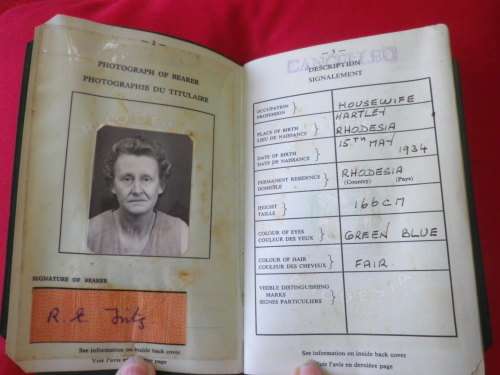 — 2 —
PHOTOGRAPH OF BEARER
PHOTOGRAPHIE DU TITULAIRE
SIGNATURE OF BEARER
See information on inside back cover
Voir l'avis en dernière page
— 3 —
CANCELLED
DESCRIPTION
SIGNALEMENT
OCCUPATION
PROFESSION
HOUSEWIFE
PLACE OF BIRTH
LIEU DE NAISSANCE
HARTLEY
RHODESIA
DATE OF BIRTH
DATE DE NAISSANCE
15TH MAY
1934
PERMANENT RESIDENCE
DOMICILE
RHODESIA
(Country) (Pays)
HEIGHT
TAILLE
166 CM
COLOUR OF EYES
COULEUR DES YEUX
GREEN BLUE
COLOUR OF HAIR
COULEUR DES CHEVEUX
FAIR
VISIBLE DISTINGUISHING
MARKS
SIGNES PARTICULIERS
See information on inside back cover
Voir l'avis en dernière page